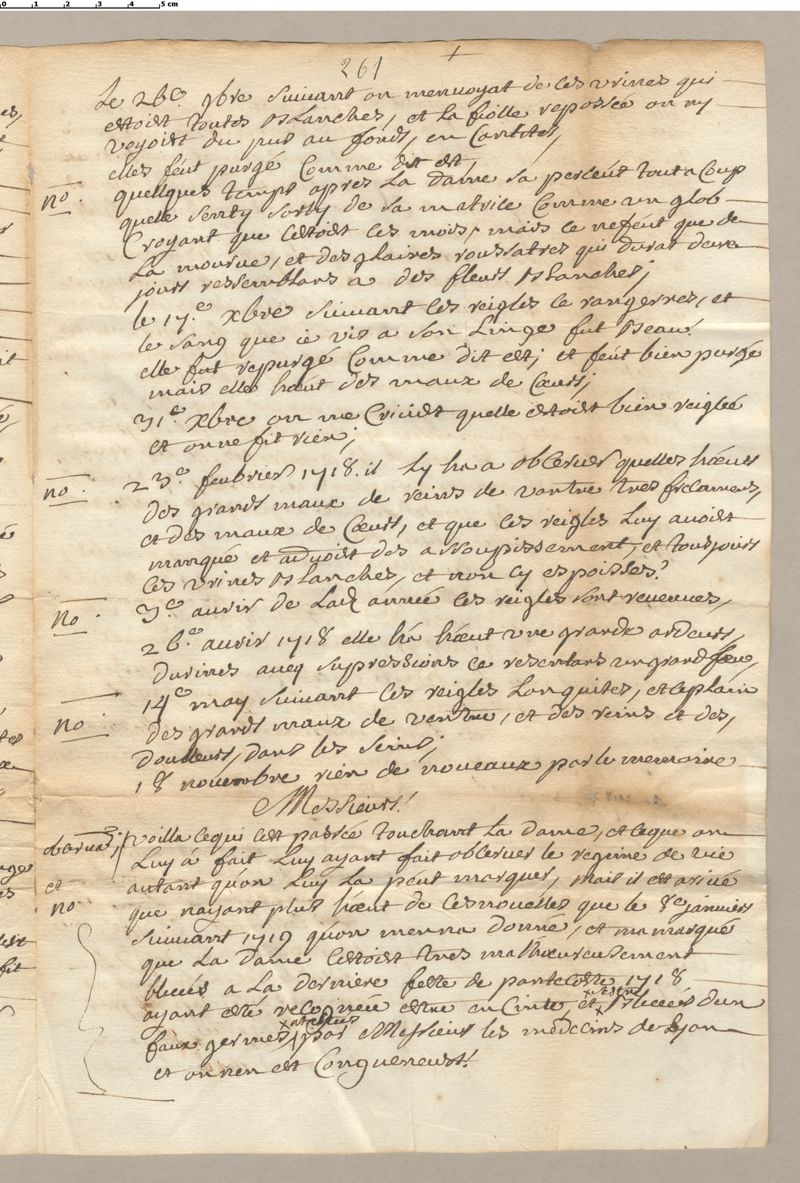 0 1 2 3 4 5 cm
261
Le 26e 9bre suivant on menvoyat de ces urines qui
estoist toutes blanches, et la fiolle reposée on ny
voyoist du pus au fonds, en cantités,
elles feut purgé comme dit est,
no. quelques temps apres La dame sa perceut tout a coup
quelle senty sorty de sa matrice comme un glob
Croyant que cestoist ces mois, mais ce nefeut que de
La mourve, et des glaires roussatres qui durat deux
jours ressemblans a des fleurs blanches;
le 17.e xbre suivant les reigles ce rangerres, et
le sang que ie vis a son Linge fut beau.
elle fut repurgé Comme dit est; et feut bien purgé
mais elle heut des maux de Cœurs;
31e xbre on me Criüst quelle estoist bien reiglée
et on ne fit rien;
no. 23e feubrier 1718. il Ly ha a observer quelles hœut
des grands maux de reins de vantre tres
et des maux de Cœurs, et que ces reigles Luy avoist
manqué et advoist des assoupissement, et tousjours
ces vrines blanches, et non cy espoisses.
no. 3e avrir de Lad année ces reigles sont revenues,
26e avrir 1718 elle ha hœut vne grande ardeurs,
durines aveq supressions ce resentans un grand feu,
14e may suivant ces reigles Lonquites, et ceplain
no. des grands maux de ventre, et des reins et des,
doulleurs, dans les seins;
18 novembre rien de nouveaux par le memoire
Messieurs!
voilla cequi cest passée touchant La dame, et ceque on
Luy á fait Luy ayant fait observer le regime de vie
et autant quon Luy La peut marquer, mais il est arivé
no que nayant plus hœut de cesnouelles que le 8e janvier
suivant 1719 quon menna donné, et ma marqué
que La dame cestoist tres malheureusement
blucés a La derniere feste de pantecoste 1718
ayant esté estre enCinte, et blucés dun
faux germes, par Messieurs les medecins de Lyon
et on nen est Conqueneust!